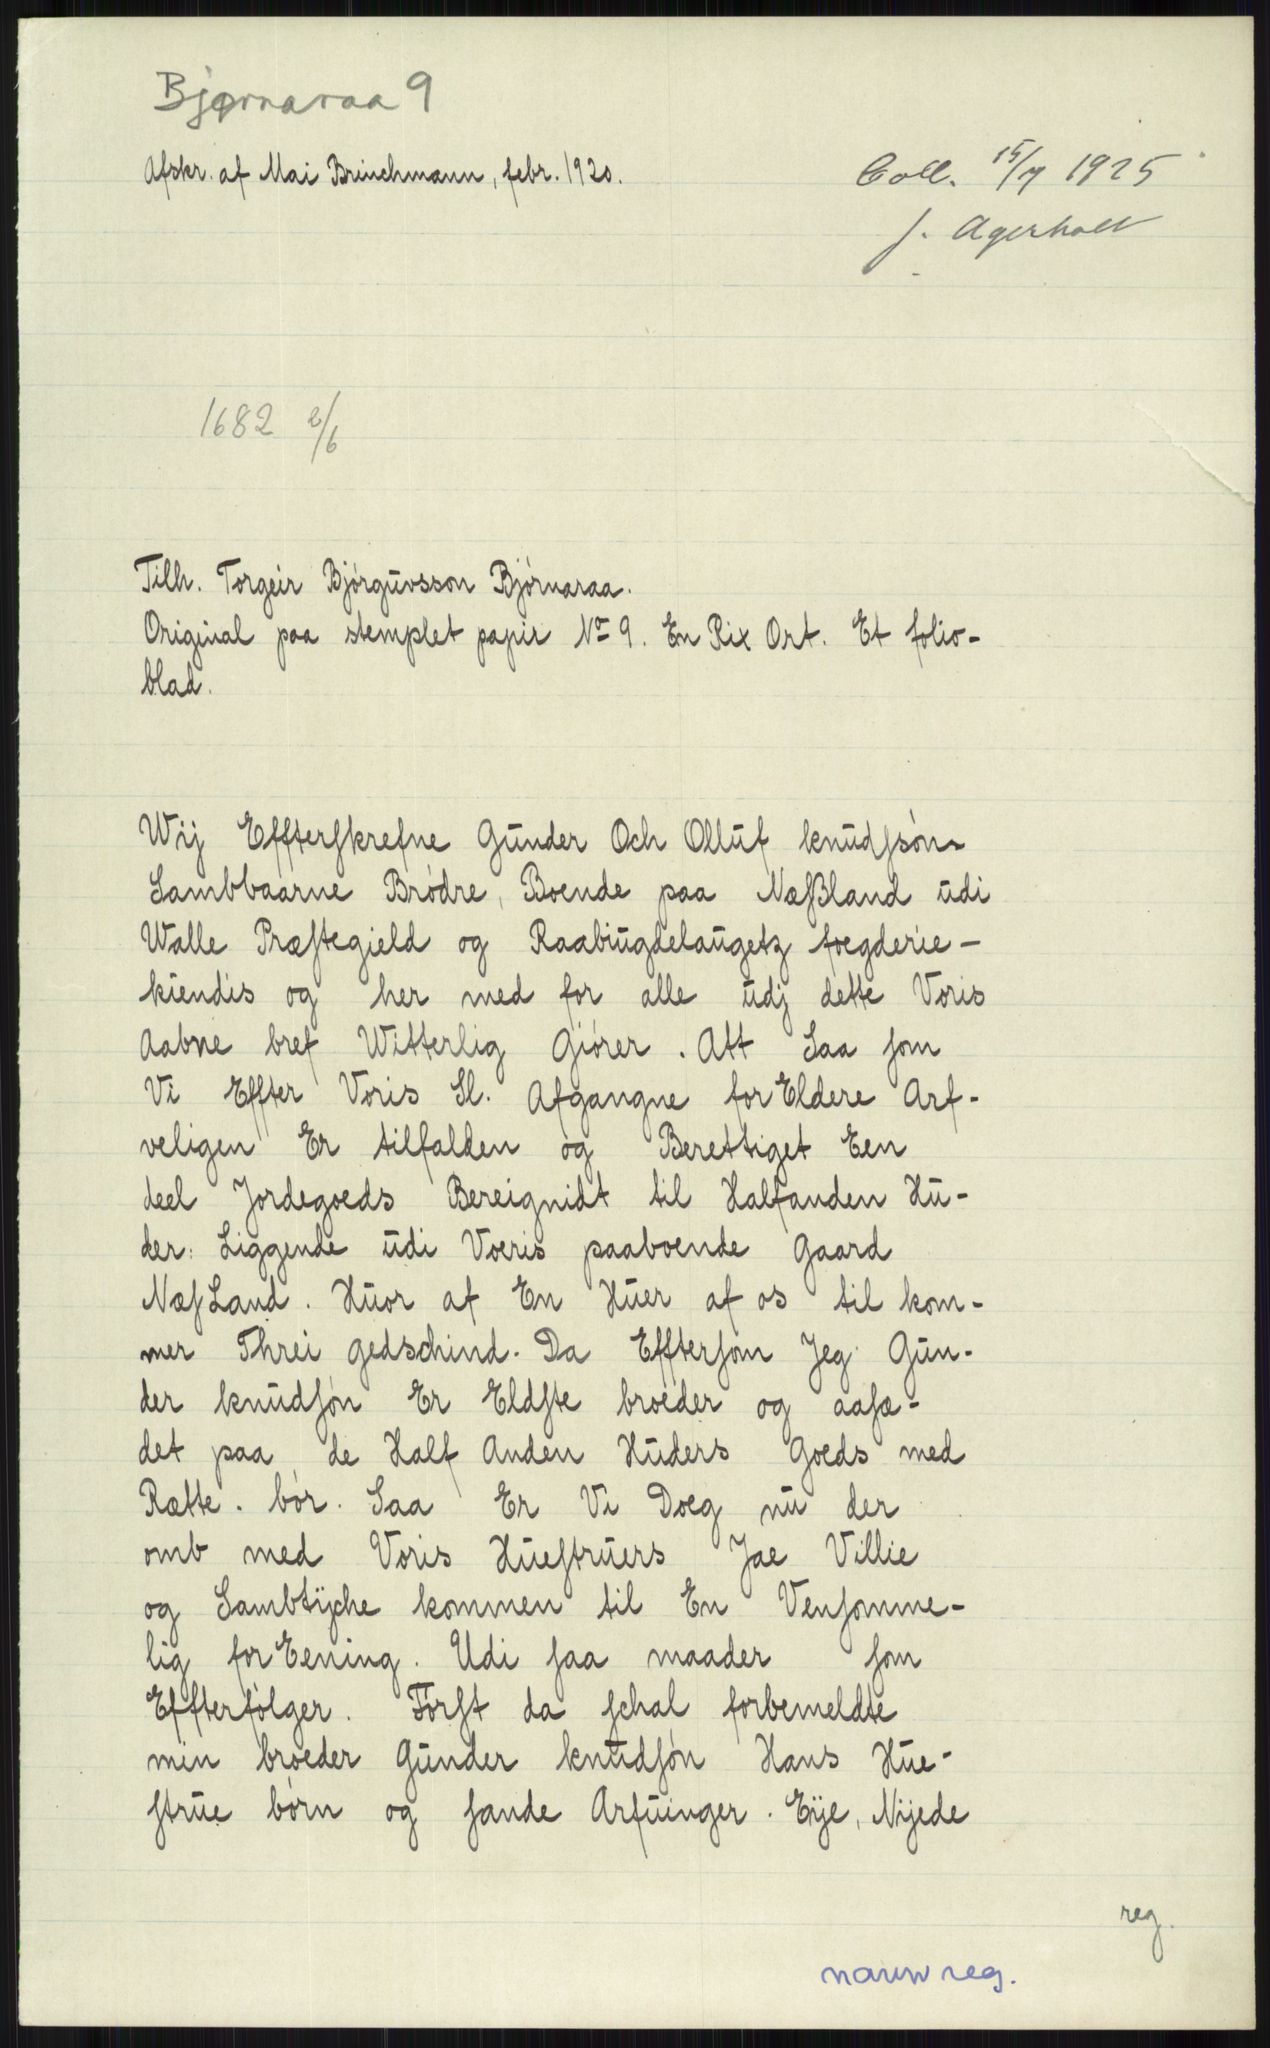 Bjørnaraa 9
Afskr. af Mai Brinchmann, febr. 1920.
Coll. 15/7 1925
J. Agerholt
1682 2/6
Tilh. Torgeir Bjórguvsson Bjórnaraa.
Original paa stemplet papir No 9. En Rix Ort. Et folio-
blad.
Wij Effterskrefne Gunder Och Olluf knudssón-
Sambbaarne Bródre, Boende paa Næsßland udi
Walle Præstegield og Raabiugdelaugetz foegderie-
kiendis og her med for alle udj dette Voris
Aabne bref Witterlig Giórer. Att Saa som
Vi Effter Voris Sl. Afgangne forEldere Arf-
veligen Er tilfalden og Berettiget Een
deel Jordegoeds Bereignidt til Halfanden Hu-
der: Liggende udi Voeris paaboende Gaard
NæsLand. Huor af En Huer af os til kom-
mer Threi gedschind. Da Efftersom Jeg Gun-
der knudsón Er Eldste broeder og aasæ-
det paa de Half Anden Huders Goeds med
Rætte. bór. Saa Er Vi Doeg nu der
omb med Voris Huestruers Jae Villie
og Sambtÿche kommen til En Vensomme-
lig forEening. Udi saa maader som
Effterfólger. Fórst da schal forbemeldte
min broeder Gunder knudsón Hans Hue-
strue bórn og sande Arfuinger. Eÿe, Nÿede
reg.
navnreg.